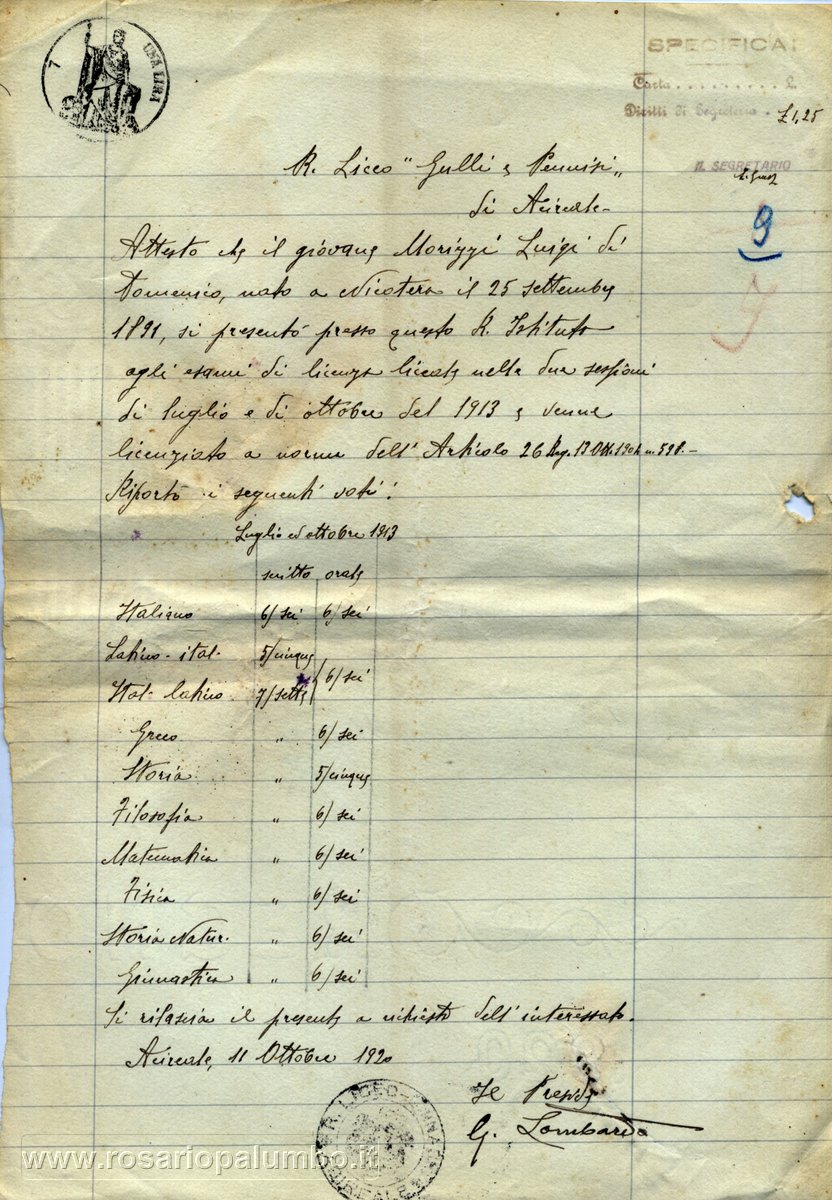 7
UNA LIRA
SPECIFICA
Carta . . . . . . . . . L.
Diritti di Segreteria . £ 1,25
IL SEGRETARIO
9
R. Liceo "Gulli e Pennisi"
di Acireale -
Attesto che il giovane Morizzi Luigi di
Domenico, nato a Nicotera il 25 settembre
1891, si presentò presso questo R. Istituto
agli esami di licenza liceale nelle due sessioni
di luglio e di ottobre del 1913 e venne
licenziato a norma dell'Articolo 26 Reg. 13 Ott. 1904 n. 598. -
Riportò i seguenti voti:
Luglio ed ottobre 1913
scritto orale
Italiano 6/sei 6/sei
Latino-ital. 5/cinque
6/sei
Ital-latino 7/sette
Greco " 6/sei
Storia " 5/cinque
Filosofia " 6/sei
Matematica " 6/sei
Fisica " 6/sei
Storia Natur. " 6/sei
Ginnastica " 6/sei
Si rilascia il presente a richiesta dell'interessato.
Acireale, 11 Ottobre 1920
Il Preside
G. Lombardo
R. LICEO-GINNA
ACIREALE
www.rosariopalumbo.it